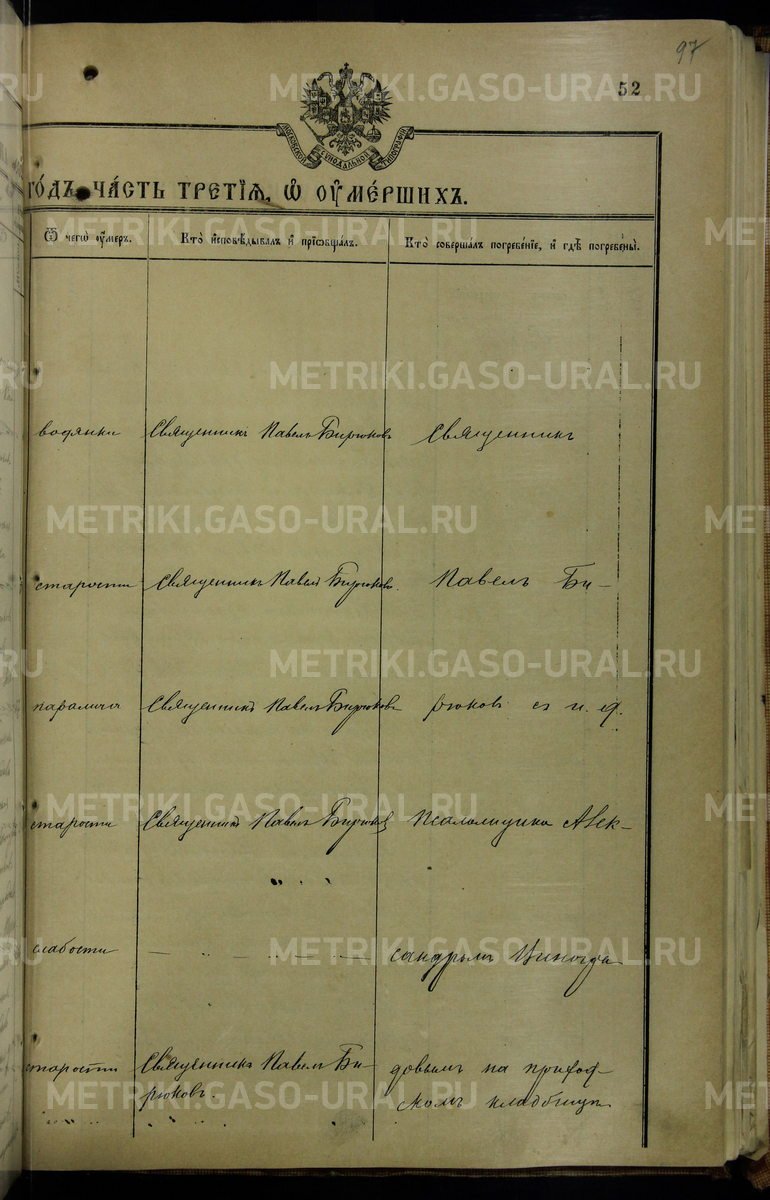 97
52
МОСКОВСКОЙ СѴНОДАЛЬНОЙ ТИПОГРАФІИ
ГОДЪ ЧАСТЬ ТРЕТІѦ, Ѡ ОУМЕРШИХЪ.
Ѿ чегѡ оумеръ.
Кто исповѣдывалъ и пріѡбщалъ.
Кто совершалъ погребеніе, и гдѣ погребены.
водянки
Священникъ Павелъ Бирюковъ
Священникъ
старости
Священникъ Павелъ Бирюковъ.
Павелъ Би-
паралича
Священникъ Павелъ Бирюковъ
рюковъ съ и. д.
старости
Священникъ Павелъ Бирюковъ
псаломщика Алек-
слабости
сандромъ Виногра
старости
Священникъ Павелъ Би-
рюковъ.
довымъ на приход
скомъ кладбищѣ
METRIKI.GASO-URAL.RU